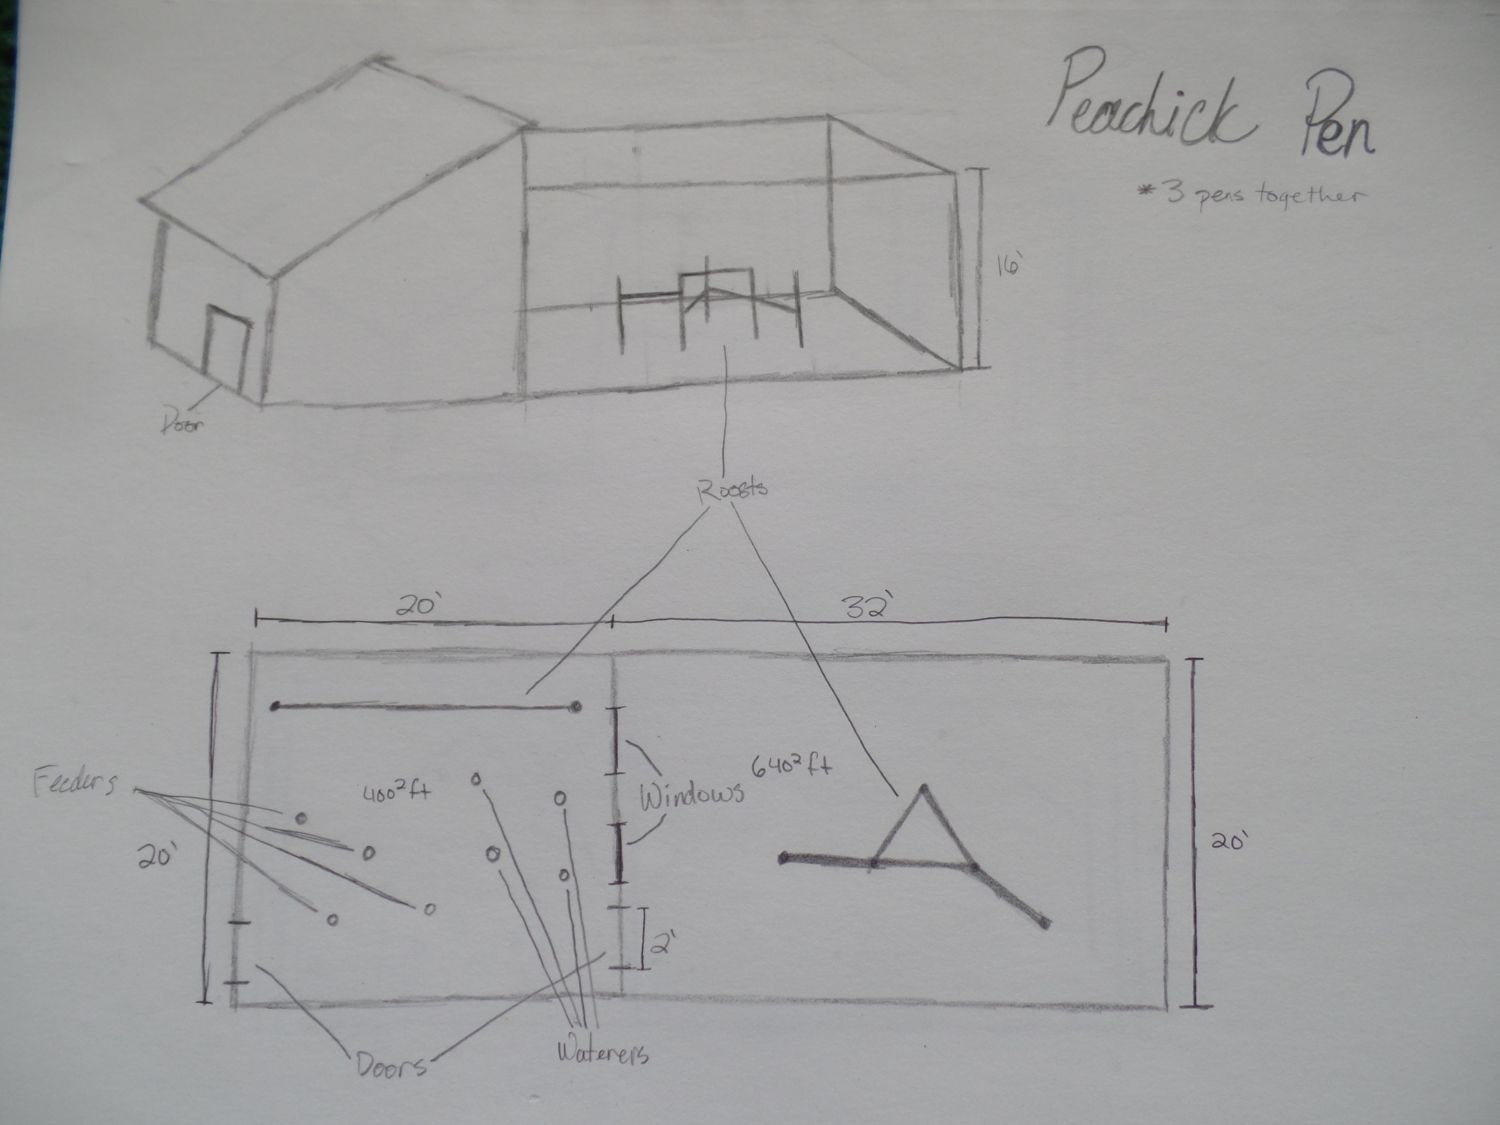 Peachick Pen
* 3 pens together
16'
Door
Roosts
20'
32'
Feeders
400²ft
Windows
640²ft
20'
20'
2'
Doors
Waterers